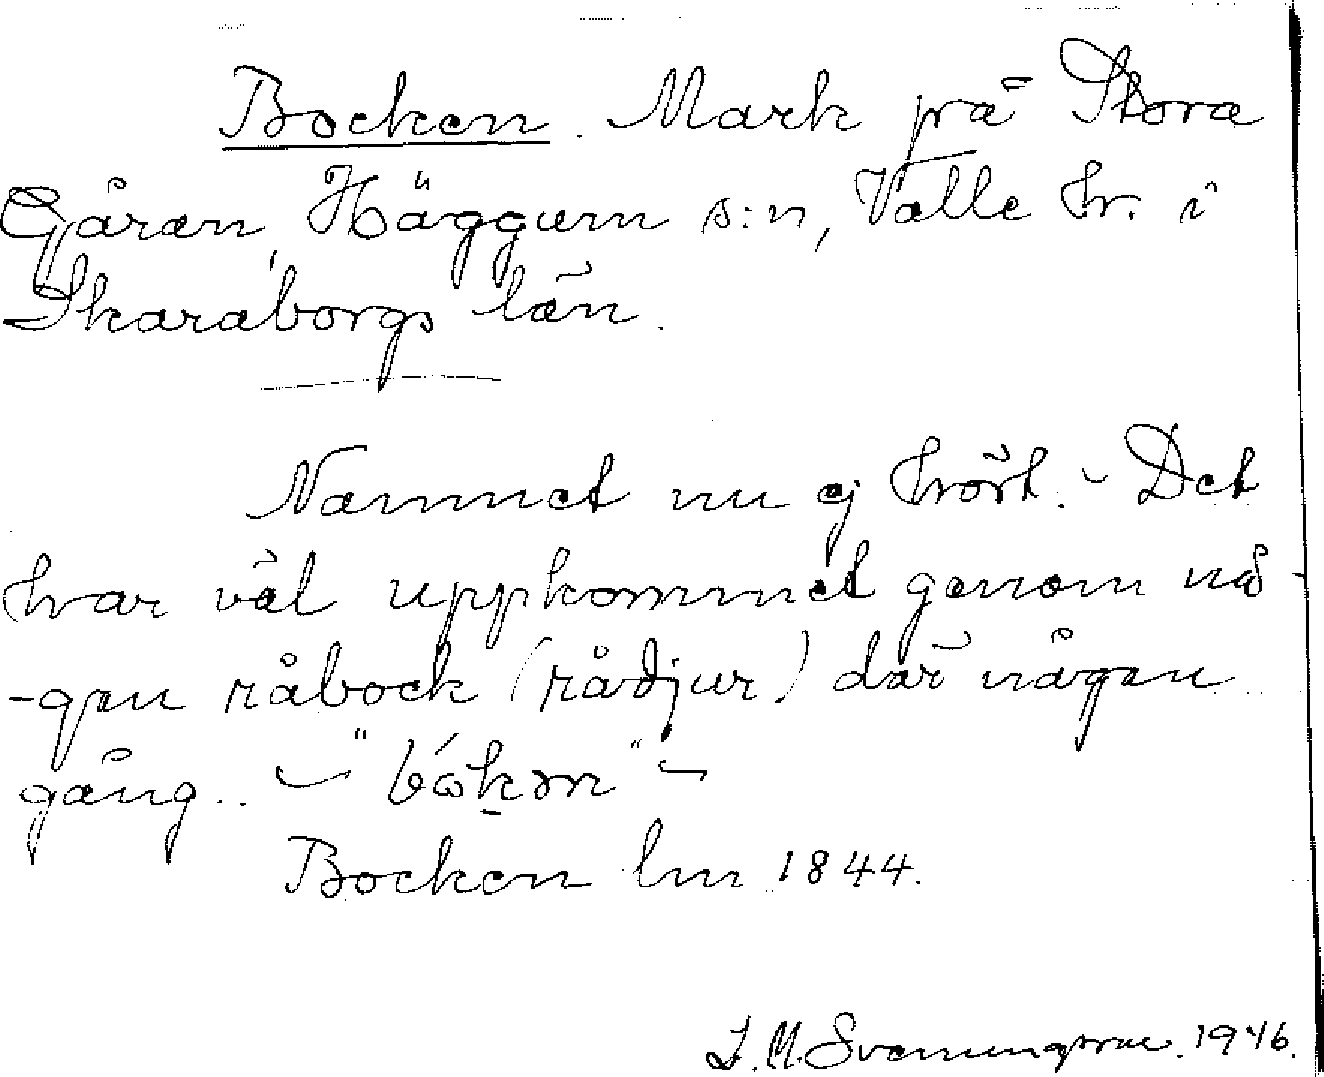 Bocken. Mark på Stora
Gåren, Häggum s:n, Valle hr. i
Skaraborgs län.
Namnet nu ej hört. - Det
har väl uppkommit genom nå-
-gen råbock (rådjur) där någon
gång.. - "bókən" -
Bocken lm 1844.
J. M. Svenningsson. 1946.